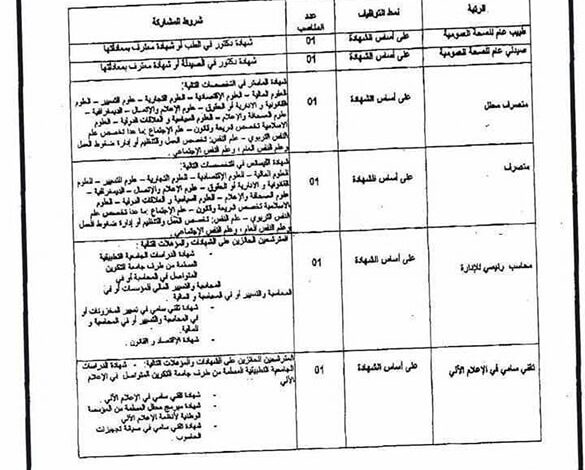 الرتبة
نمط التوظيف
عدد
المناصب
شروط المشاركة
طبيب عام للصحة العمومية
على أساس الشهادة
01
شهادة دكتور في الطب أو شهادة معترف بمعادلتها
صيدلي عام للصحة العمومية
على أساس الشهادة
01
شهادة دكتور في الصيدلة أو شهادة معترف بمعادلتها
متصرف محلل
على أساس الشهادة
01
شهادة الماستر في التخصصات التالية:
العلوم المالية – العلوم الاقتصادية – العلوم التجارية – علوم التسيير – العلوم
القانونية و الادارية أو الحقوق – علوم الإعلام والاتصال – الديمغرافية –
علوم الصحافة والإعلام – العلوم السياسية و العلاقات الدولية – العلوم
الاسلامية تخصص شريعة وقانون – علم الإجتماع ما عدا تخصص علم
النفس التربوي – علم النفس: تخصص العمل والتنظيم أو إدارة ضغوط العمل
وعلم النفس العام، وعلم النفس الإجتماعي.
متصرف
على أساس الشهادة
01
شهادة الليسانس في التخصصات التالية:
العلوم المالية – العلوم الإقتصادية – العلوم التجارية – علوم التسيير – العلوم
القانونية و الادارية أو الحقوق – علوم الإعلام والاتصال – الديمغرافية –
علوم الصحافة والإعلام – العلوم السياسية و العلاقات الدولية – العلوم
الاسلامية تخصص شريعة وقانون – علم الإجتماع ما عدا تخصص علم
النفس التربوي – علم النفس: تخصص العمل والتنظيم أو إدارة ضغوط العمل
وعلم النفس العام، وعلم النفس الإجتماعي.
محاسب رئيسي للإدارة
على أساس الشهادة
01
المترشحين الحائزين على الشهادات والمؤهلات التالية:
- شهادة الدراسات الجامعية التطبيقية
المسلمة من طرف جامعة التكوين
المتواصل في المحاسبة أو في
المحاسبة والتسيير المالي للمؤسسات أو في
المحاسبة والتسيير أو في المحاسبة و المالية.
- شهادة تقني سامي في تسيير المخزونات أو
في المحاسبة والتسيير أو في المحاسبة و
المالية.
- شهادة الإقتصاد و القانون.
تقني سامي في الإعلام الآلي
على أساس الشهادة
01
المترشحين الحائزين على الشهادات والمؤهلات التالية: - شهادة الدراسات
الجامعية التطبيقية المسلمة من طرف جامعة التكوين المتواصل في الإعلام
الآلي
- شهادة تقني سامي في الإعلام الآلي
- شهادة مبرمج محلل المسلمة من المؤسسة
الوطنية لأنظمة الإعلام الآلي
- شهادة تقني سامي في صيانة تجهيزات
الحاسوب